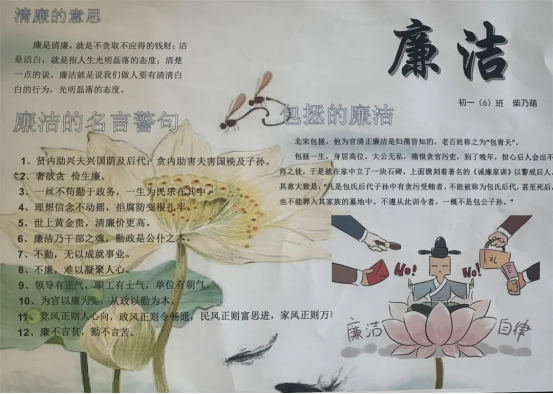 清廉的意思
廉是清廉，就是不贪取不应得的钱财；洁
是洁白，就是指人生光明磊落的态度。清楚
一点的说，廉洁就是说我们做人要有清清白
白的行为，光明磊落的态度。
廉洁
初一（6）班 柴乃萌
廉洁的名言警句
1、贤内助兴夫兴国荫及后代；贪内助害夫害国殃及子孙。
2、奢欲贪 俭生廉。
3、一丝不苟勤于政务，一生为民果在其中。
4、理想信念不动摇，拒腐防变根扎牢。
5、世上黄金贵，清廉价更高。
6、廉洁乃干部之魂，勤政是公仆之本。
7、不勤，无以成就事业。
8、不廉，难以凝聚人心。
9、领导有正气，职工有士气，单位有朝气。
10、为官以廉为先，从政以勤为本。
11、党风正则人心向，政风正则令畅通，民风正则富思进，家风正则万
12、廉不言贫，勤不言苦。
包拯的廉洁
北宋包拯，他为官清正廉洁是妇孺皆知的，老百姓称之为“包青天”。
包拯一生，身居高位，大公无私，痛恨贪官污吏，到了晚年，担心后人会出不
肖之徒，于是就在家中立了一块石碑，上面镌刻着著名的《诫廉家训》以警戒后人。
其意大致是：“凡是包氏后代子孙中有贪污受贿者，不能被称为包氏后代，甚至死后
也不能葬入其家族的墓地中。不遵从此训令者，一概不是包公子孙。”
No!
No!
礼
廉洁
自律